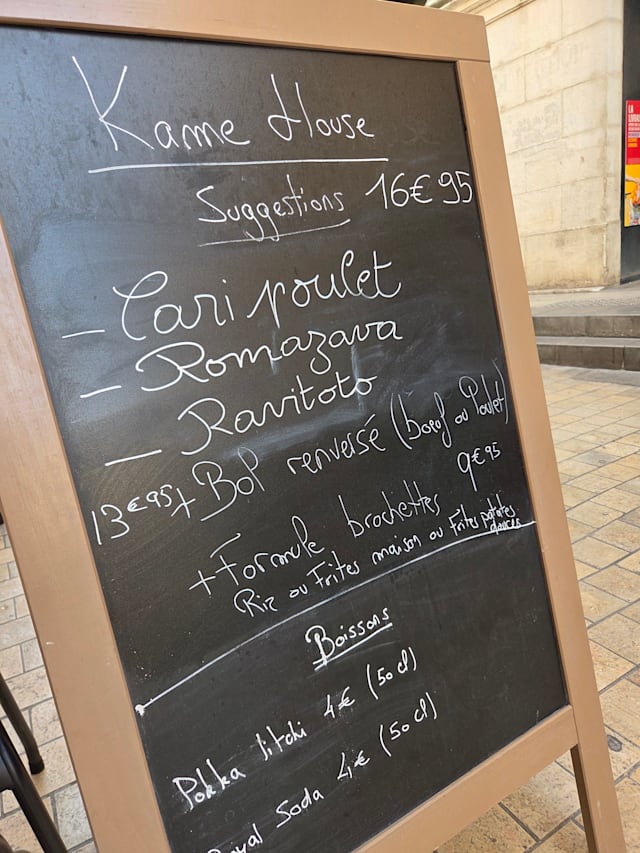 Kame House
Suggestions 16€95
- Cari poulet
- Romazava
- Ravitoto
13€95 + Bol renversé (boeuf ou Poulet)
+ Formule brochettes 9€95
Riz ou Frites maison ou Frites patates douces
Boissons
Pokka litchi 4€ (50 cl)
Royal Soda 4€ (50 cl)
LA